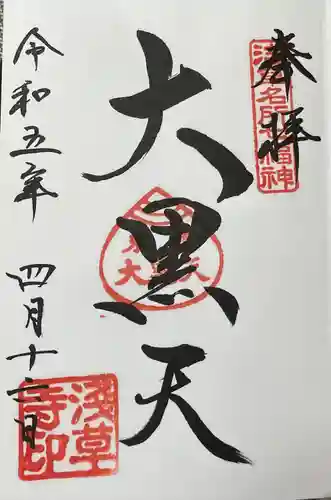 奉拝
浅草名所七福神
大黒天
令和五年
四月十六日
浅草
寺印